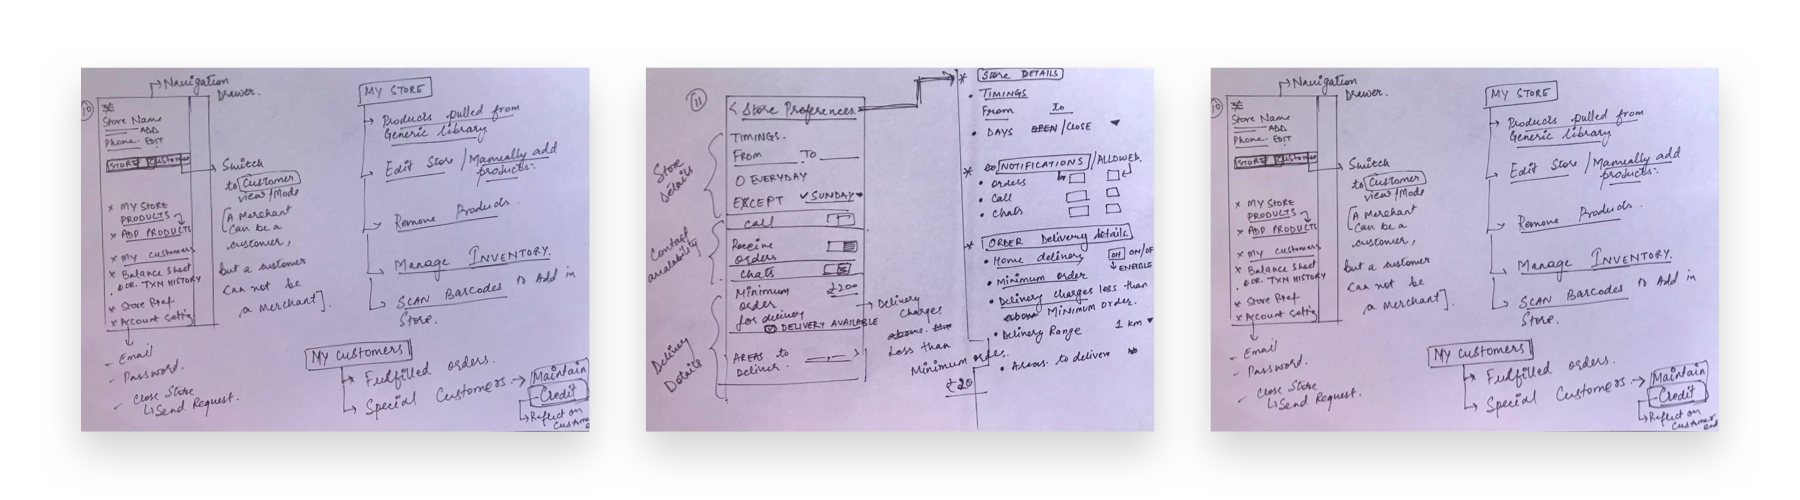 10
Navigation
Drawer.
Store Name
ADD
Phone. EDIT
STORE Customer
Switch
to Customer
view/Mode
[A Merchant
can be a
customer,
but a customer
can not be
a merchant].
x MY STORE
PRODUCTS
x ADD PRODUCTS
x My customers
x Balance Sheet
OR. TXN HISTORY
x Store Pref
x Account Setting
- Email
- Password.
- Close Store
Send Request.
MY STORE
Products pulled from
Generic library
Edit Store / Manually add
products.
Remove Products.
Manage INVENTORY.
SCAN Barcodes to Add in
Store.
My customers
Fulfilled orders.
Special Customers → Maintain
Credit
Reflect on
Customer
end
11
< Store Preferences
Store
Details
TIMINGS.
From To
O EVERYDAY
EXCEPT ✓ SUNDAY
Contact
availability
call
Receive
orders
chats
Delivery
Details
Minimum
order
for delivery
₹200
DELIVERY AVAILABLE
AREAS to
Deliver.
Delivery
Charges
above.
Less than
Minimum order.
₹20
* Store DETAILS
• TIMINGS
From to
• DAYS OPEN/CLOSE
* NOTIFICATIONS / ALLOWED.
• orders
• Call
• Chats
* ORDER Delivery details
• Home delivery ON ON/OF
ENEIBLE
• Minimum order
• Delivery charges less than
above Minimum order.
• Delivery Range 1 km
• Areas. to deliver
10
Navigation
Drawer.
Store Name
ADD
Phone. EDIT
STORE Customer
Switch
to Customer
view/Mode
[A Merchant
can be a
customer,
but a customer
can not be
a merchant].
x MY STORE
PRODUCTS
x ADD PRODUCTS
x My customers
x Balance Sheet
OR. TXN HISTORY
x Store Pref
x Account Setting
- Email
- Password.
- Close Store
Send Request.
MY STORE
Products pulled from
Generic library
Edit Store / Manually add
products.
Remove Products.
Manage INVENTORY.
SCAN Barcodes to Add in
Store.
My customers
Fulfilled orders.
Special Customers → Maintain
Credit
Reflect on
Customer
end